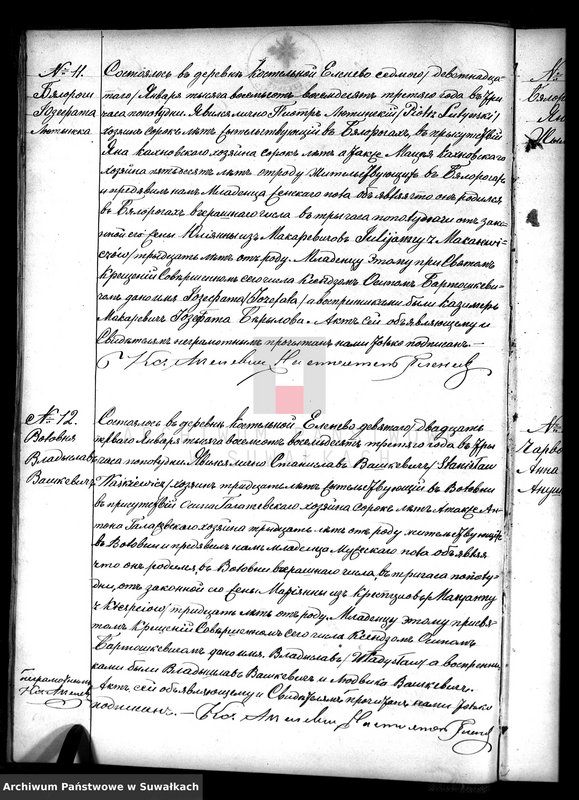 № 11.
Бялороги
Юзефата
Лютинска
Состоялось въ деревнѣ костельной Еленево седьмого/девятнадца-
таго/Января тысяча восемьсотъ восемьдесятъ третьяго года въ три
часа пополудни. Явился лично Піотръ Лютинскій/Piotr Lutyński/
хозяинъ сорокъ лѣтъ жительствующій въ Бялорогахъ, въ присутствіи
Яна Кахновскаго хозяина сорокъ лѣтъ а также Мацея Кахновскаго
хозяина пятьдесятъ лѣтъ отроду жительствующихъ въ Бялорогахъ
и предъявилъ намъ Младенца женскаго пола объявляя что онъ родился
въ Бялорогахъ вчерашняго числа въ три часа пополудни отъ зако-
нной его жены Юліянны изъ Макаревичовъ/Julijanny z Makarewi-
czów/тридцать лѣтъ отъ роду. Младенцу этому при Святомъ
Крещеніи Совершенномъ сего числа Ксендзомъ Осипомъ Бартошкеви-
чемъ дано имя Юзефата/Jozefata/а воспріемниками были Казимеръ
Макаревичъ Юзефата Бкрылова. Актъ сей объявляющему и
Свидѣтелямъ неграмотнымъ прочитанъ нами только подписанъ.—
Кс. Настоятель
№ 12.
Вотовня
Владыславъ
Вашкевичъ
Состоялось въ деревнѣ костельной Еленево девятаго/двадцать
перваго Января тысяча восемьсотъ восемьдесятъ третьяго года въ три
часа пополудни. Явился лично Станиславъ Вашкевичъ/Stanisław
Waśkiewicz/хозяинъ тридцать лѣтъ жительствующій въ Вотовни
въ присутствіи хозяина сорокъ лѣтъ а также Ан-
тона хозяина тридцать лѣтъ отъ роду жительствующихъ
въ Вотовни и предъявилъ намъ младенца Мужескаго пола объявляя
что онъ родился въ Вотовни вчерашняго числа въ три часа пополу-
дни, отъ законной его жены Маріянны изъ Maryanny
z тридцать лѣтъ отъ роду. Младенцу этому при свя-
томъ Крещеніи Совершенномъ сего числа Ксендзомъ Осипомъ
Бартошкевичемъ дано имя Владыславъ/Władysław/а воспріем-
никами были Владыславъ Вашкевичъ и Людвика Вашкевичъ.
Актъ сей объявляющему и Свидѣтелямъ прочитанъ нами только
подписанъ.— Кс. Настоятель
неграмотнымъ
№
Бялор
Ян
№
Чарво
Анна
W SUWAŁKACH
Archiwum Państwowe w Suwałkach